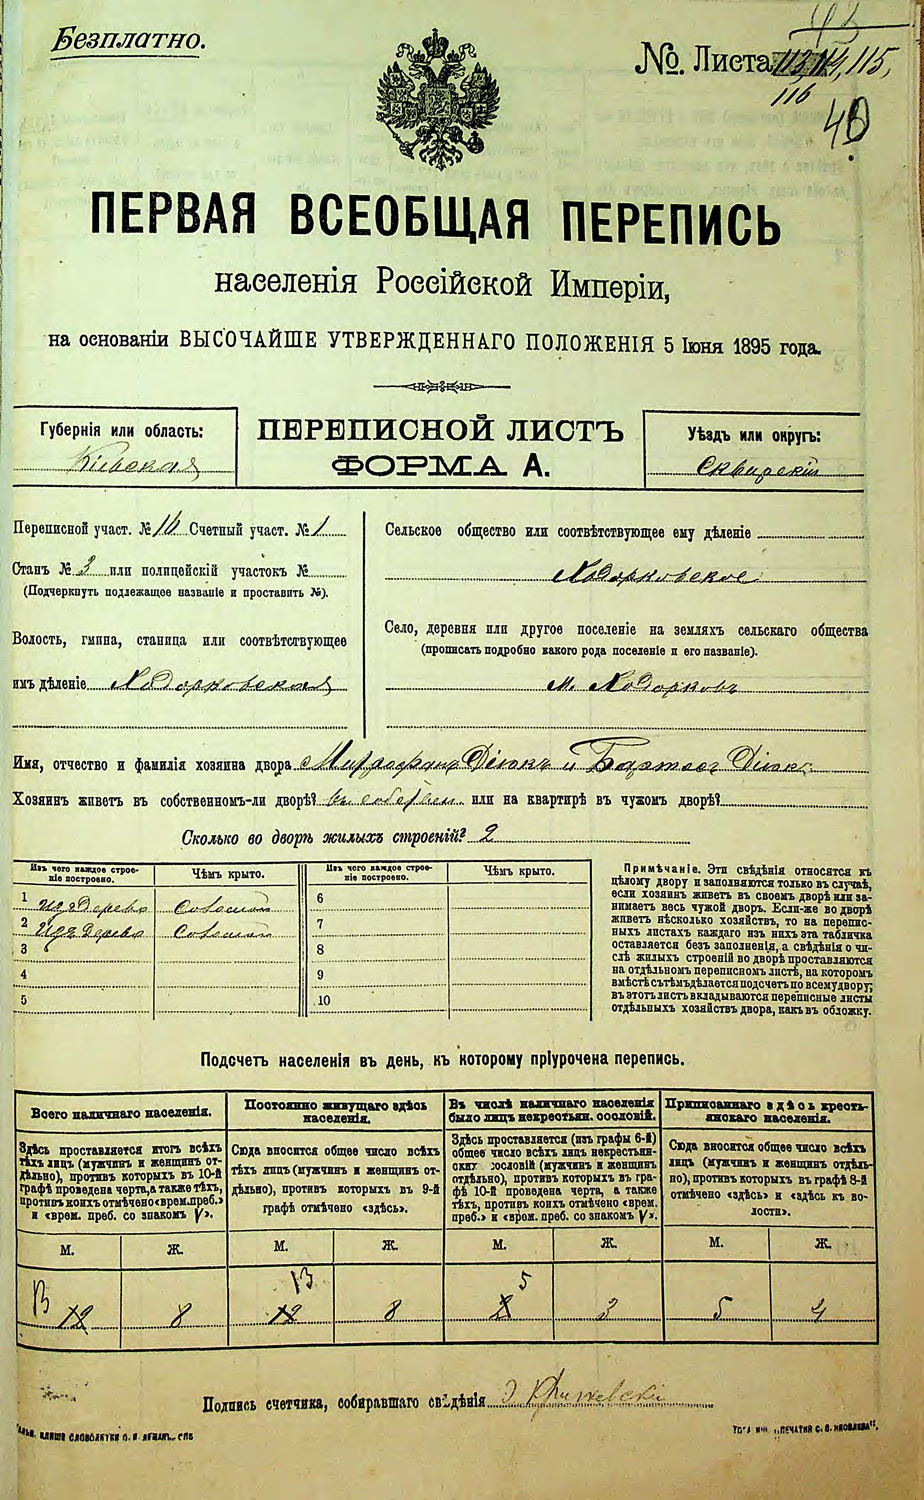 Безплатно.
№. Листа 113, 114, 115,
116
ПЕРВАЯ ВСЕОБЩАЯ ПЕРЕПИСЬ
населенія Россійской Имперіи,
на основаніи ВЫСОЧАЙШЕ УТВЕРЖДЕННАГО ПОЛОЖЕНІЯ 5 Іюня 1895 года.
Губернія или область:
Кіевская
ПЕРЕПИСНОЙ ЛИСТЪ
ФОРМА А.
Уѣздъ или округъ:
Сквирскій
Переписной участ. № 16 Счетный участ. № 1
Станъ № 3 или полицейскій участокъ №
(Подчеркнуть подлежащее названіе и проставить №).
Волость, гмина, станица или соотвѣтствующее
имъ дѣленіе Ходорковская
Сельское общество или соотвѣтствующее ему дѣленіе
Ходорковское
Село, деревня или другое поселеніе на земляхъ сельскаго общества
(прописать подробно какого рода поселеніе и его названіе).
м. Ходорковъ
Имя, отчество и фамилія хозяина двора
Хозяинъ живетъ въ собственномъ-ли дворѣ? или на квартирѣ въ чужомъ дворѣ?
Сколько во дворѣ жилыхъ строеній? 2
Изъ чего каждое строеніе построено. Чѣмъ крыто.
1 изъ дерева соломой
2 изъ дерева соломой
3
4
5
Изъ чего каждое строеніе построено. Чѣмъ крыто.
6
7
8
9
10
Примѣчаніе. Эти свѣдѣнія относятся къ
цѣлому двору и заполняются только въ случаѣ,
если хозяинъ живетъ въ своемъ дворѣ или за-
нимаетъ весь чужой дворъ. Если-же во дворѣ
живетъ нѣсколько хозяйствъ, то на перепис-
ныхъ листахъ каждаго изъ нихъ эта табличка
оставляется безъ заполненія, а свѣдѣнія о чи-
слѣ жилыхъ строеній во дворѣ проставляются
на отдѣльномъ переписномъ листѣ, на которомъ
вмѣстѣ съ тѣмъ дѣлается подсчетъ по всему двору;
въ этотъ листъ вкладываются переписные листы
отдѣльныхъ хозяйствъ двора, какъ въ обложку.
Подсчетъ населенія въ день, къ которому пріурочена перепись.
Всего наличнаго населенія.
Здѣсь проставляется итогъ всѣхъ
тѣхъ лицъ (мужчинъ и женщинъ от-
дѣльно), противъ которыхъ въ 10-й
графѣ проведена черта, а также тѣхъ,
противъ коихъ отмѣчено «врем. преб.»
и «врем. преб. со знакомъ V».
М. Ж.
13 12 8
Постоянно живущаго здѣсь
населенія.
Сюда вносится общее число всѣхъ
тѣхъ лицъ (мужчинъ и женщинъ от-
дѣльно), противъ которыхъ въ 9-й
графѣ отмѣчено «здѣсь».
М. Ж.
13
12 8
Въ числѣ наличнаго населенія
было лицъ некрестьян. сословій.
Здѣсь проставляется (изъ графы 6-й)
общее число всѣхъ лицъ некрестьян-
скихъ сословій (мужчинъ и женщинъ
отдѣльно), противъ которыхъ въ гра-
фѣ 10-й проведена черта, а также
тѣхъ, противъ коихъ отмѣчено «врем.
преб.» и «врем. преб. со знакомъ V».
М. Ж.
5
3
Приписаннаго здѣсь кресть-
янскаго населенія.
Сюда вносится общее число всѣхъ
лицъ (мужчинъ и женщинъ отдѣль-
но), противъ которыхъ въ графѣ 8-й
отмѣчено «здѣсь» и «здѣсь къ во-
лости».
М. Ж.
5 4
Подпись счетчика, собиравшаго свѣдѣнія